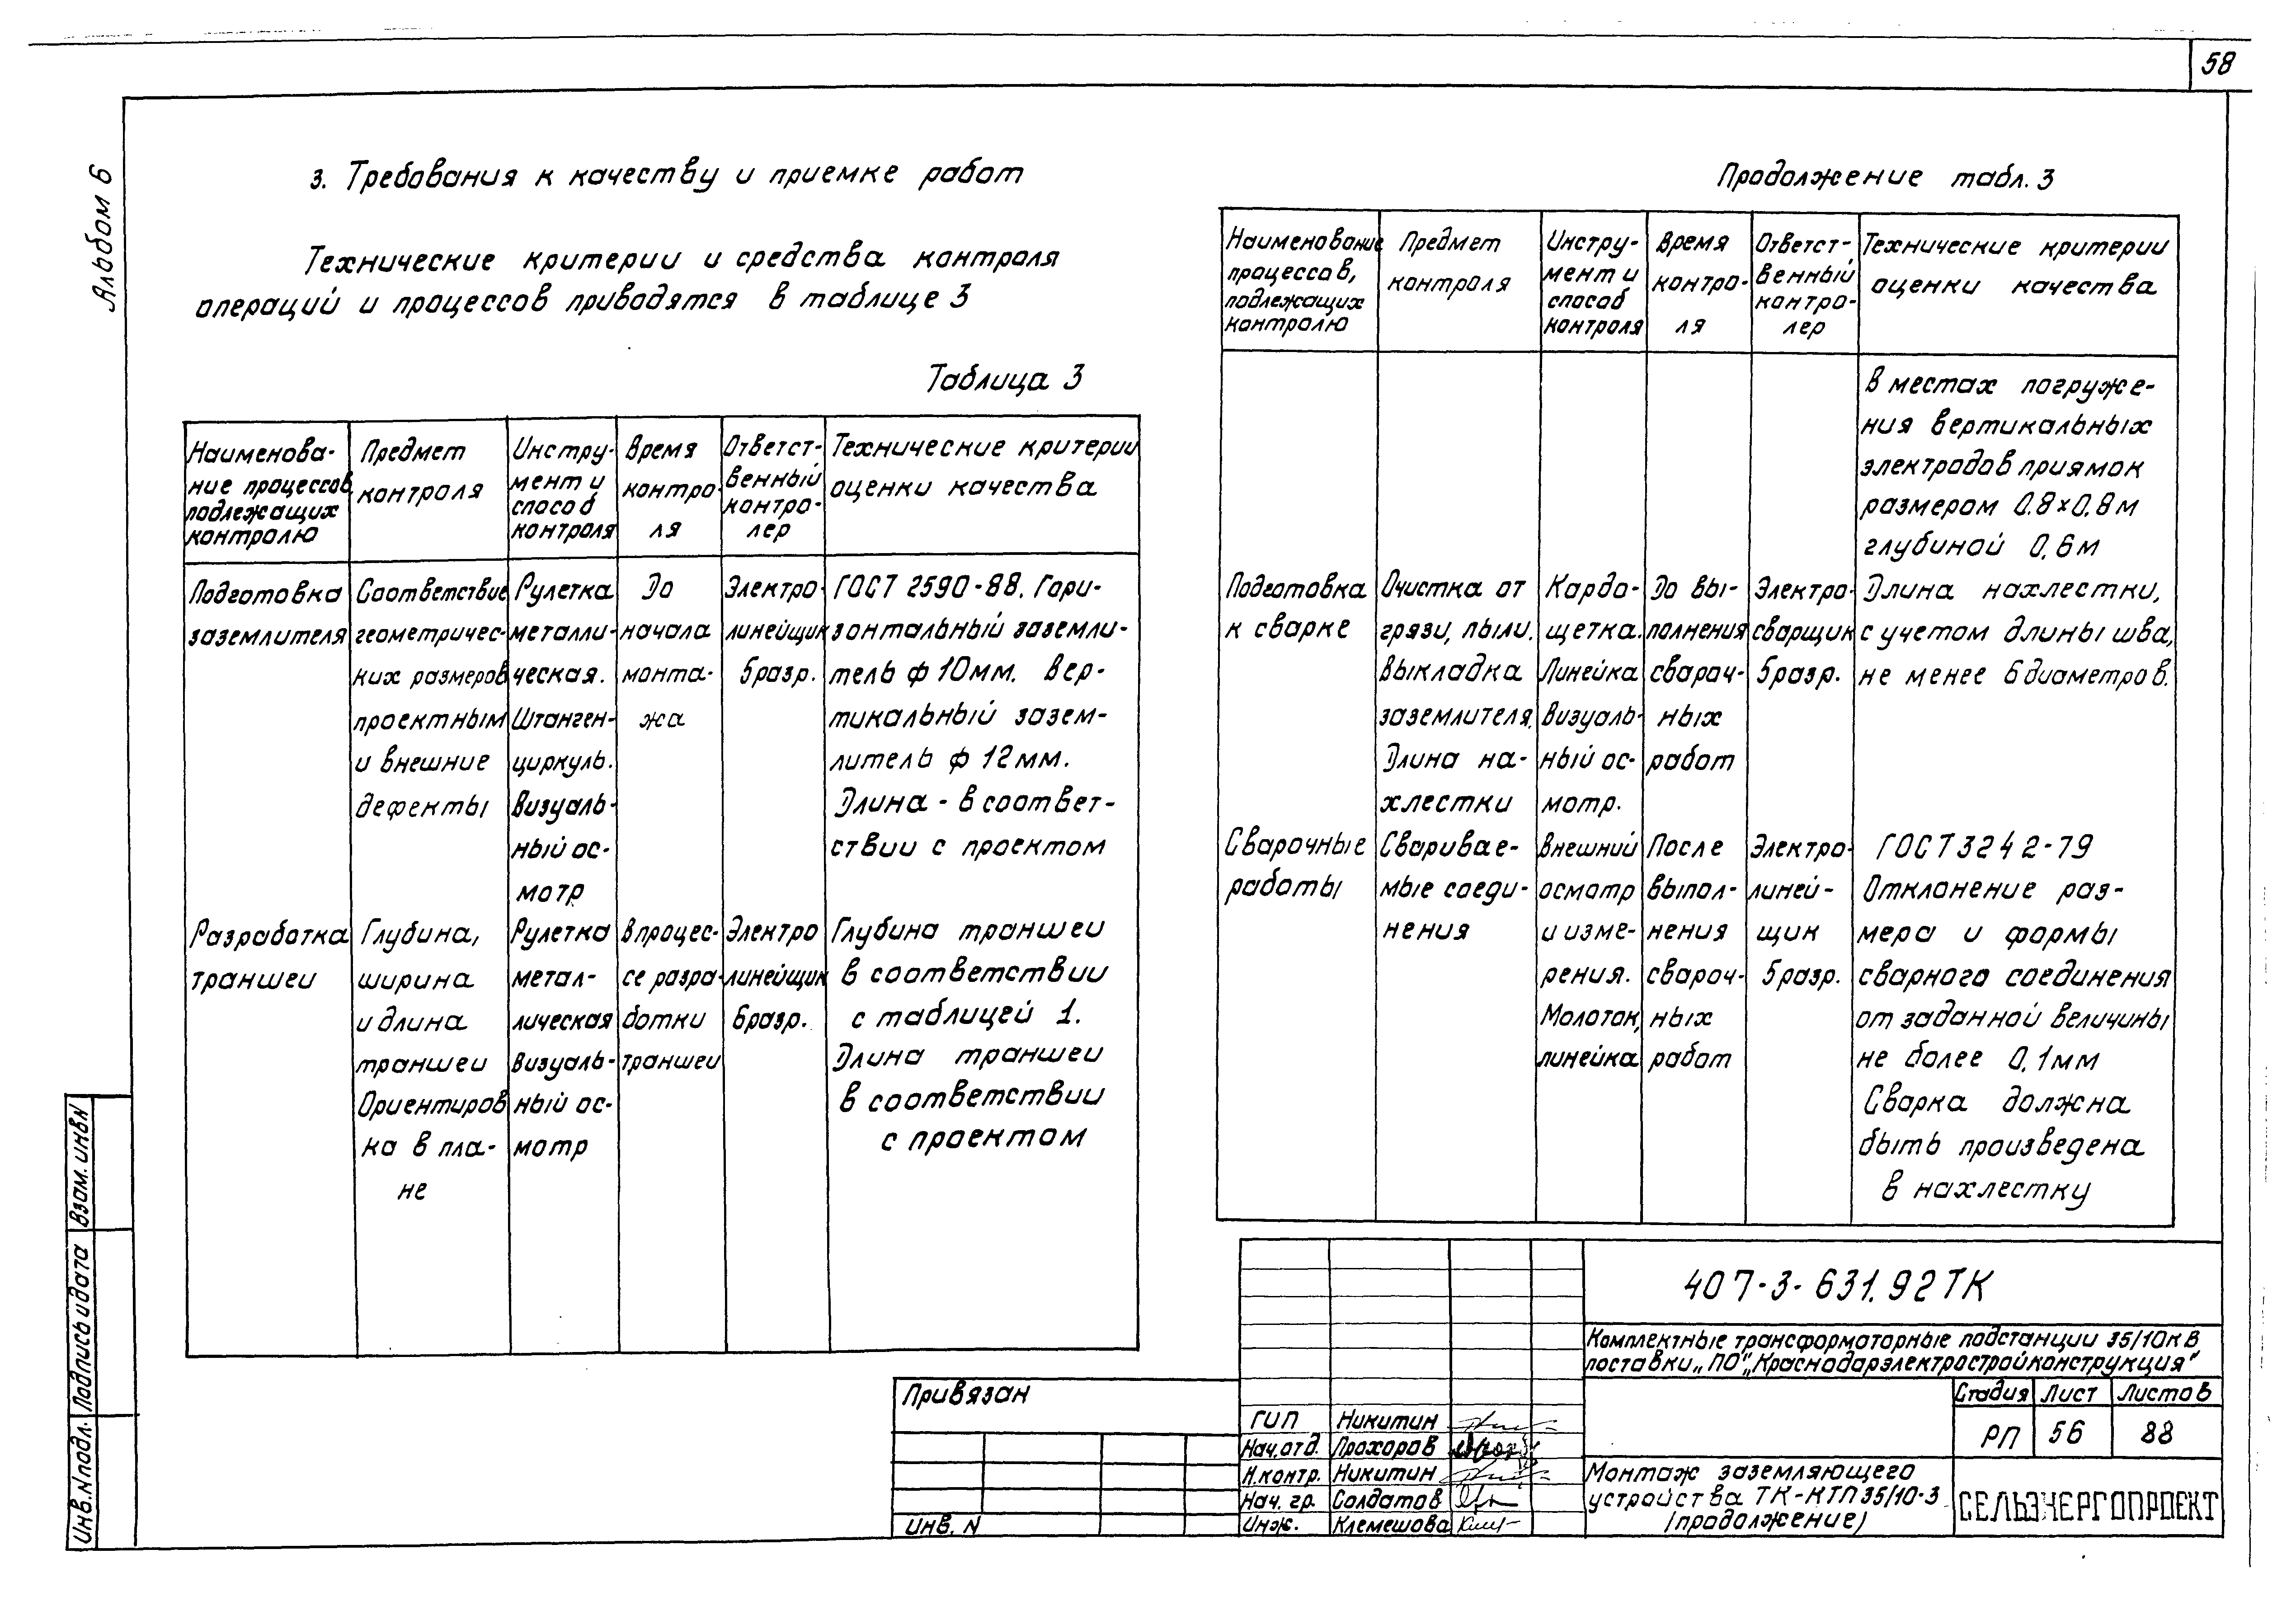 58
Альбом 6
3. Требования к качеству и приемке работ
Технические критерии и средства контроля
операций и процессов приводятся в таблице 3
Таблица 3
Наименова-
ние процессов,
подлежащих
контролю
Предмет
контроля
Инстру-
мент и
способ
контроля
Время
контро-
ля
Ответст-
венный
контро-
лер
Технические критерии
оценки качества
Подготовка
заземлителя
Соответствие
геометричес-
ких размеров
проектным
и внешние
дефекты
Рулетка
металли-
ческая.
Штанген-
циркуль.
Визуаль-
ный ос-
мотр
До
начала
монта-
жа
Электро-
линейщик
5разр.
ГОСТ 2590-88. Гори-
зонтальный заземли-
тель ф 10мм. Вер-
тикальный зазем-
литель ф 12мм.
Длина - в соответ-
ствии с проектом
Разработка
траншеи
Глубина,
ширина
и длина
траншеи
Ориентиров
ка в пла-
не
Рулетка
метал-
лическая
Визуаль-
ный ос-
мотр
В процес-
се разра-
ботки
траншеи
Электро
линейщик
6разр.
Глубина траншеи
в соответствии
с таблицей 1.
Длина траншеи
в соответствии
с проектом
Продолжение табл. 3
Наименование
процессов,
подлежащих
контролю
Предмет
контроля
Инстру-
мент и
способ
контроля
Время
контро-
ля
Ответст-
венный
контро-
лер
Технические критерии
оценки качества
В местах погруже-
ния вертикальных
электродов приямок
размером 0.8×0.8м
глубиной 0,6м
Подготовка
к сварке
Очистка от
грязи, пыли.
Выкладка
заземлителя.
Длина на-
хлестки
Кардо-
щетка.
Линейка
Визуаль-
ный ос-
мотр.
До вы-
полнения
свароч-
ных
работ
Электро-
сварщик
5разр.
Длина нахлестки,
с учетом длины шва,
не менее 6 диаметров.
Сварочные
работы
Сваривае-
мые соеди-
нения
Внешний
осмотр
и изме-
рения.
Молоток,
линейка
После
выпол-
нения
свароч-
ных
работ
Электро-
линей-
щик
5разр.
ГОСТ 3242-79
Отклонение раз-
мера и формы
сварного соединения
от заданной величины
не более 0,1мм
Сварка должна
быть произведена
в нахлестку
407-3-631.92ТК
Комплектные трансформаторные подстанции 35/10кВ
поставки „ПО„Краснодарэлектростройконструкция"
Стадия Лист Листов
РП 56 88
Монтаж заземляющего
устройства ТК-КТП 35/10-3
(продолжение)
СЕЛЬЭНЕРГОПРОЕКТ
ГИП Никитин
Нач.отд. Прохоров
Н.контр. Никитин
Нач. гр. Солдатов
Инж. Клемешова
Привязан
Инв. N
Взам. инв N
Подпись и дата
Инв. N подл.